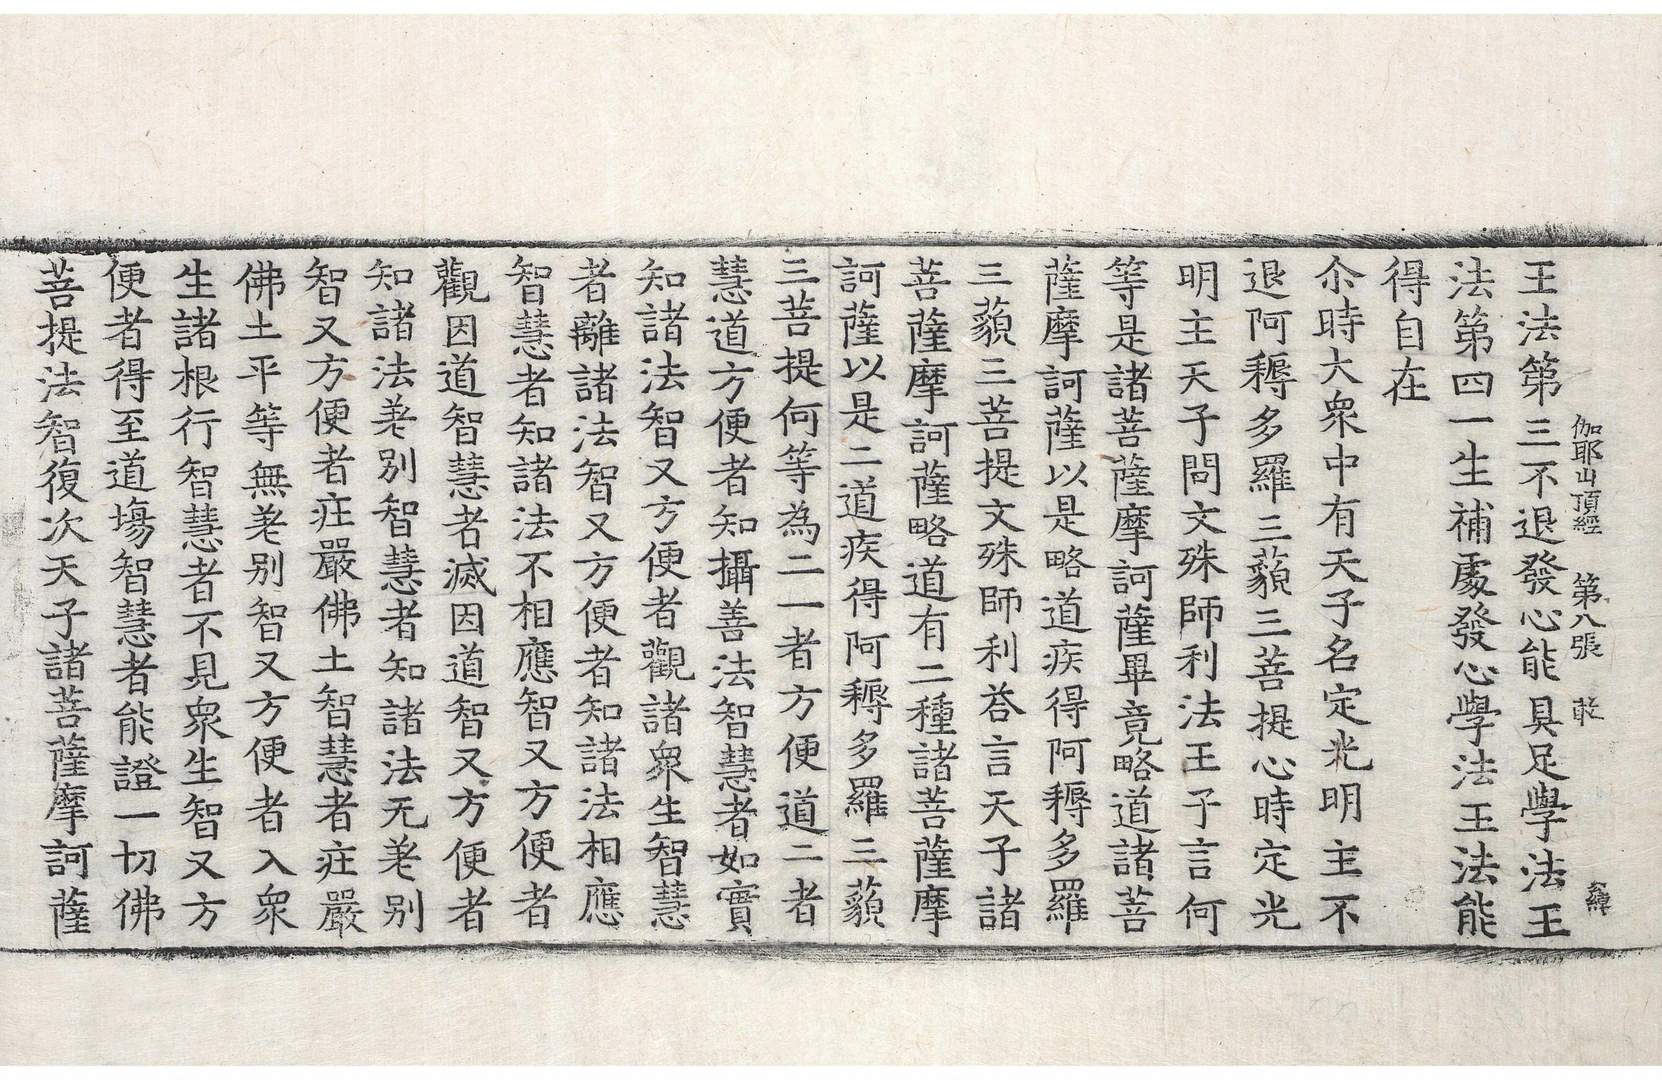 伽耶山頂經　第八張
王法第三不退發心能具足學法王
法第四一生補處發心學法王法能
得自在
尒時大衆中有天子名定光明主不
退阿耨多羅三藐三菩提心時定光
明主天子問文殊師利法王子言何
等是諸菩薩摩訶薩畢竟略道諸菩
薩摩訶薩以是略道疾得阿耨多羅
三藐三菩提文殊師利荅言天子諸
菩薩摩訶薩略道有二種諸菩薩摩
訶薩以是二道疾得阿耨多羅三藐
三菩提何等為二一者方便道二者
慧道方便者知攝善法智慧者如實
知諸法智又方便者觀諸衆生智慧
者離諸法智又方便者知諸法相應
智慧者知諸法不相應智又方便者
觀因道智慧者滅因道智又方便者
知諸法差別智慧者知諸法无差别
智又方便者莊嚴佛土智慧者莊嚴
佛土平等無差别智又方便者入衆
生諸根行智慧者不見衆生智又方
便者得至道場智慧者能證一切佛
菩提法智復次天子諸菩薩摩訶薩